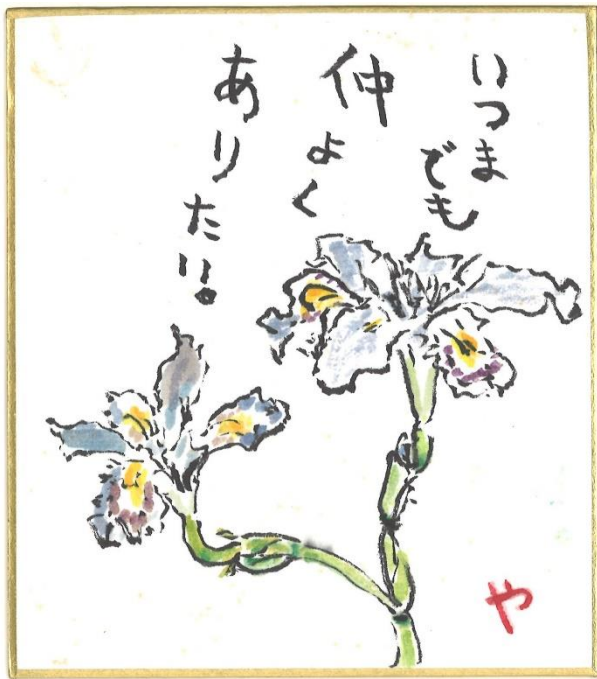 いつま
でも
仲よく
ありたい。
や